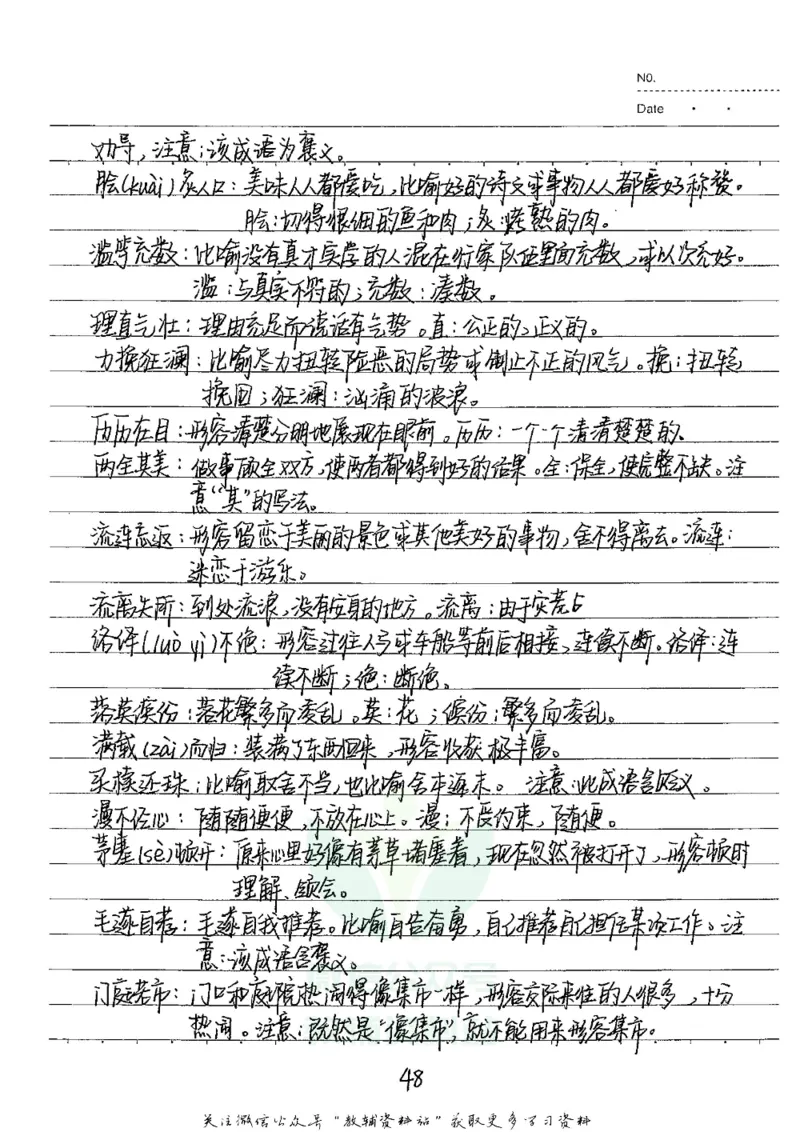 NO.
Date
劝导，注意：该成语为褒义。
脍(kuài)炙人口：美味人人都爱吃，比喻好的诗文或事物人人都爱好称赞。
脍：切得很细的鱼和肉；炙：烤熟的肉。
滥竽充数：比喻没有真才实学的人混在行家队伍里面充数，或以次充好。
滥：与真实不符的；充数：凑数。
理直气壮：理由充足而说话有气势。直：公正的、正义的。
力挽狂澜：比喻尽力扭转险恶的局势或制止不正的风气。挽：扭转，
挽回；狂澜：汹涌的波浪。
历历在目：形容清楚分明地展现在眼前。历历：一个个清清楚楚的。
两全其美：做事顾全双方，使两者都得到好的结果。全：保全，使完整不缺。注
意“其”的写法。
流连忘返：形容留恋于美丽的景色或其他美好的事物，舍不得离去。流连：
迷恋于游乐。
流离失所：到处流浪，没有安身的地方。流离：由于灾荒
络绎(luò yì)不绝：形容过往人马或车船等前后相接，连续不断。络绎：连
续不断；绝：断绝。
落英缤纷：落花繁多而凌乱。英：花；缤纷：繁多而凌乱。
满载(zài)而归：装满了东西回来，形容收获极丰富。
买椟还珠：比喻取舍不当，也比喻舍本逐末。 注意：此成语含贬义。
漫不经心：随随便便，不放在心上。漫：不受约束，随便。
茅塞(sè)顿开：原来心里好像有茅草堵塞着，现在忽然被打开了，形容顿时
理解、领会。
毛遂自荐：毛遂自我推荐。比喻自告奋勇，自己推荐自己担任某项工作。注
意：该成语含褒义。
门庭若市：门口和庭院热闹得像集市一样，形容交际来往的人很多，十分
热闹。注意：既然是“像集市”，就不能用来形容集市。
48
关注微信公众号“教辅资料站”获取更多学习资料